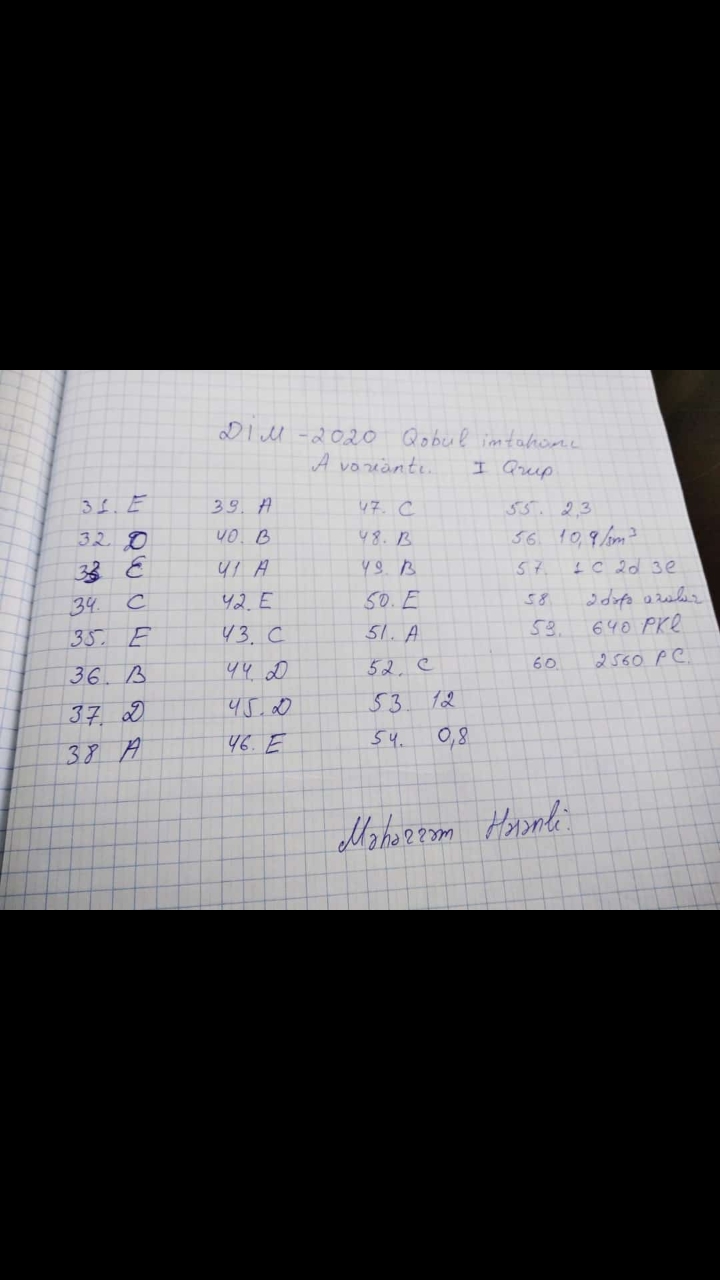 DİM -2020 Qəbul imtahanı
A variantı. I Qrup
31. E
32. D
33 E
34. C
35. E
36. B
37. D
38 A
39. A
40. B
41 A
42. E
43. C
44. D
45. D
46. E
47. C
48. B
49. B
50. E
51. A
52. C
53. 12
54. 0,8
55. 2,3
56. 10,9/sm³
57. 1C 2d 3e
58. 2dəfə azalar
59. 640 PKl
60. 2560 PC.
Məhərrəm Həsənli.